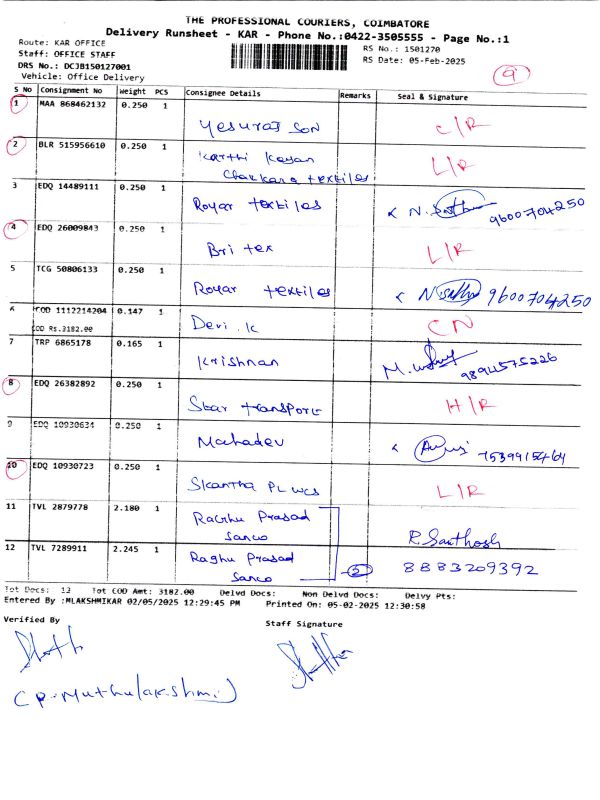 THE PROFESSIONAL COURIERS, COIMBATORE
Delivery Runsheet - KAR - Phone No.:0422-3505555 - Page No.:1
Route: KAR OFFICE
RS No.: 1501270
Staff: OFFICE STAFF
RS Date: 05-Feb-2025
DRS No.: DCJB150127001
Vehicle: Office Delivery
9
S No Consignment No Weight PCS Consignee Details Remarks Seal & Signature
1 MAA 868462132 0.250 1
Yesuraj Son C/R
2 BLR 515956610 0.250 1
Karthi Kayan L/R
textiles
3 EDQ 14489111 0.250 1
Royar textiles 9600704250
4 EDQ 26009843 0.250 1
Bri tex L/R
5 TCG 50806133 0.250 1
Royar textiles 9600704250
COD 1112214204 0.147 1
OD Rs.3182.00 Devi.K CN
7 TRP 6865178 0.165 1
Krishnan M.
8 EDQ 26382892 0.250 1
Star transport H/R
9 EDQ 10930634 0.250 1
Mahadev
10 EDQ 10930723 0.250 1
Skantha L/R
11 TVL 2879778 2.180 1
Raghu Prasad
Sanco R. Santhosh
12 TVL 7289911 2.245 1
Raghu Prasad 8883209392
Sanco 2
Tot Docs: 12 Tot COD Amt: 3182.00 Delvd Docs: Non Delvd Docs: Delvy Pts:
Entered By :MLAKSHMIKAR 02/05/2025 12:29:45 PM Printed On: 05-02-2025 12:30:58
Verified By Staff Signature
(P. Muthulakshmi)